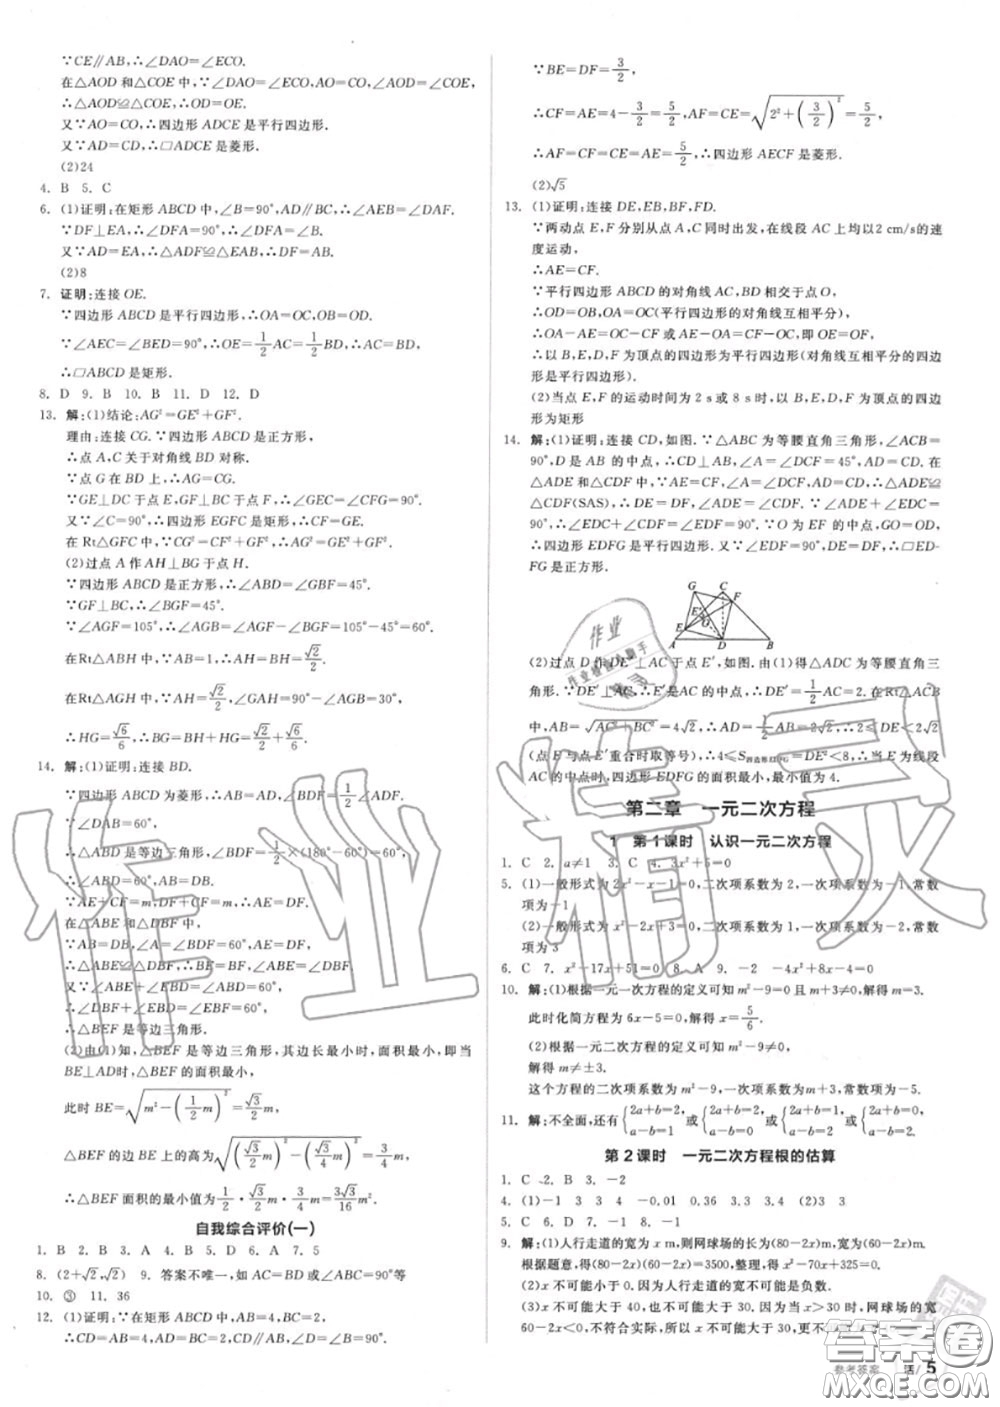 ∵CE∥AB,∴∠DAO=∠ECO.
在△AOD 和△COE 中,∵∠DAO=∠ECO,AO=CO,∠AOD=∠COE,
∴△AOD≌△COE,∴OD=OE.
又∵AO=CO,∴四边形 ADCE 是平行四边形.
又∵AD=CD,∴□ADCE 是菱形.
(2)24
4. B 5. C
6. (1)证明:在矩形 ABCD 中,∠B=90°,AD∥BC,∴∠AEB=∠DAF.
∵DF⊥EA,∴∠DFA=90°,∴∠DFA=∠B.
又∵AD=EA,∴△ADF≌△EAB,∴DF=AB.
(2)8
7. 证明:连接 OE.
∵四边形 ABCD 是平行四边形,∴OA=OC,OB=OD.
∵∠AEC=∠BED=90°,∴OE=1/2 AC=1/2 BD,∴AC=BD,
∴□ABCD 是矩形.
8. D 9. B 10. B 11. D 12. D
13. 解:(1)结论:AG²=GE²+GF².
理由:连接 CG.∵四边形 ABCD 是正方形,
∴点 A,C 关于对角线 BD 对称.
∵点 G 在 BD 上,∴AG=CG.
∵GE⊥DC 于点 E,GF⊥BC 于点 F,∴∠GEC=∠CFG=90°.
又∵∠C=90°,∴四边形 EGFC 是矩形,∴CF=GE.
在 Rt△GFC 中,∵CG²=CF²+GF²,∴AG²=GE²+GF².
(2)过点 A 作 AH⊥BG 于点 H.
∵四边形 ABCD 是正方形,∴∠ABD=∠GBF=45°.
∵GF⊥BC,∴∠BGF=45°.
∵∠AGF=105°,∴∠AGB=60°,∴∠GAH=30°.
在Rt△ABH 中,∵AB=1,∴AH=BH=√2/2.
在Rt△AGH 中,∵AH=√2/2,∠GAH=90°-∠AGB=30°,
∴HG=√6/6,∴BG=BH+HG=√2/2+√6/6.
14. 解:(1)证明:连接 BD.
∵四边形 ABCD 为菱形,∴AB=AD,∠BDF=1/2∠ADF.
∵∠DAB=60°,
∴△ABD 是等边三角形,∠BDF=1/2×(180°-60°)=60°,
∴∠A=∠BDF=60°,AB=DB.
∵AE+CF=m,DF+CF=m,∴AE=DF.
在△ABE 和△DBF 中,
∵AB=DB,∠A=∠BDF=60°,AE=DF,
∴△ABE≌△DBF,∴BE=BF,∠ABE=∠DBF.
又∵∠ABE+∠EBD=∠ABD=60°,
∴∠DBF+∠EBD=∠EBF=60°.
∴△BEF 是等边三角形.
(2)由(1)知,△BEF 是等边三角形,其边长最小时,面积最小,即当
BE⊥AD时,△BEF 的面积最小,
此时 BE=√(m²-(1/2 m)²)=√3/2 m,
△BEF 的边 BE 上的高为√((√3/2 m)²-(√3/4 m)²)=3/4 m,
∴△BEF 面积的最小值为 1/2·√3/2 m·3/4 m=3√3/16 m².
自我综合评价(一)
1. B 2. B 3. A 4. B 5. D 6. A 7. 5
8. (2+√2,√2) 9. 答案不唯一,如 AC=BD 或∠ABC=90°等
10. ③ 11. 36
12. (1)证明:∵在矩形 ABCD 中,AB=4,BC=2,
∴CD=AB=4,AD=BC=2,CD∥AB,∠D=∠B=90°.
∵BE=DF=3/2,
∴CF=AE=4-3/2=5/2,AF=CE=√(2²+(3/2)²)=5/2,
∴AF=CF=CE=AE=5/2,∴四边形 AECF 是菱形.
(2)√5
13. (1)证明:连接 DE,EB,BF,FD.
∵两动点 E,F 分别从点 A,C 同时出发,在线段 AC 上均以2 cm/s的速
度运动,
∴AE=CF.
∵平行四边形 ABCD 的对角线 AC,BD 相交于点 O,
∴OD=OB,OA=OC(平行四边形的对角线互相平分),
∴OA-AE=OC-CF 或 AE-OA=CF-OC,即 OE=OF,
∴以 B,E,D,F 为顶点的四边形为平行四边形(对角线互相平分的四边
形是平行四边形).
(2)当点 E,F 的运动时间为 2 s或 8 s时,以 B,E,D,F 为顶点的四边
形为矩形
14. 解:(1)证明:连接 CD,如图.∵△ABC 为等腰直角三角形,∠ACB=
90°,D 是 AB 的中点,∴CD⊥AB,∴∠A=∠DCF=45°,AD=CD.在
△ADE 和△CDF 中,∵AE=CF,∠A=∠DCF,AD=CD,∴△ADE≌
△CDF(SAS),∴DE=DF,∠ADE=∠CDF.∵∠ADE+∠EDC=
90°,∴∠EDC+∠CDF=∠EDF=90°.∵O 为 EF 的中点,GO=OD,
∴四边形 EDFG 是平行四边形.又∵DE=DF,∠EDF=90°,∴□ED-
FG 是正方形.
G C F E E′ O A D B
(2)过点 D 作 DE′⊥AC 于点 E′,如图.由(1)可知,△ADC 为等腰直角三
角形.∵DE′⊥AC,∴DE′=1/2 AC=2.在 Rt△ACB
中,AB=√(AC²+BC²)=4√2,∴AD=1/2 AB=2√2,∴2≤DE<2√2
(点 E 与点 E′重合时取等号),∴4≤S四边形EDFG=DE²<8,∴当 E 为线段
AC 的中点时,四边形 EDFG 的面积最小,最小值为 4.
第二章 一元二次方程
1 第 1 课时 认识一元二次方程
1. C 2. a≠1 3. C 4. 3x²+5=0
5. (1)一般形式为 2x²-x-1=0,二次项系数为 2,一次项系数为-1,常数
项为-1
(2)一般形式为 x²-2x+3=0,二次项系数为 1,一次项系数为-2,常数
项为 3
6. C 7. x²-17x+51=0 8. A 9. -2 -4x²+8x-4=0
10. 解:(1)根据一元一次方程的定义可知 m²-9=0且 m+3≠0,解得 m=3.
此时化简方程为 6x-5=0,解得 x=5/6.
(2)根据一元二次方程的定义可知 m²-9≠0,
解得 m≠±3.
这个方程的二次项系数为 m²-9,一次项系数为m+3,常数项为-5.
11. 解:不全面,还有{2a+b=2, a-b=1 {2a+b=1, a-b=2 {2a+b=2, a-b=0 {2a+b=0, a-b=2
第 2 课时 一元二次方程根的估算
1. C 2. B 3. -2
4. (1)-1 3 3 4 -0.01 0.36 3.3 3.4 (2)3 3
5. C 6. D 7. -1 8. -1
9. 解:(1)人行走道的宽为 x m,则网球场的长为(80-2x)m,宽为(60-2x)m.
根据题意,得(80-2x)(60-2x)=3500,整理,得 x²-70x+325=0.
(2)x 不可能小于 0.因为人行走道的宽不可能是负数.
(3)x 不可能大于 40,也不可能大于 30.当 x>30 时,网球场的宽
60-2x<0,不符合实际,所以 x 不可能大于 30,更不可能
参考答案 活/ 5
作业精灵
作业
作业检查小助手
答案圈
MXQE.COM